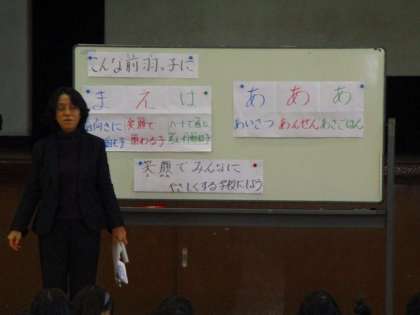 こんな前羽っ子に
ま え は
前向きに
笑顔で
関わる子
ハートで感じ
あ あ あ
あいさつ あんぜん あさごはん
笑顔でみんなに
やさしくする学校にしよう